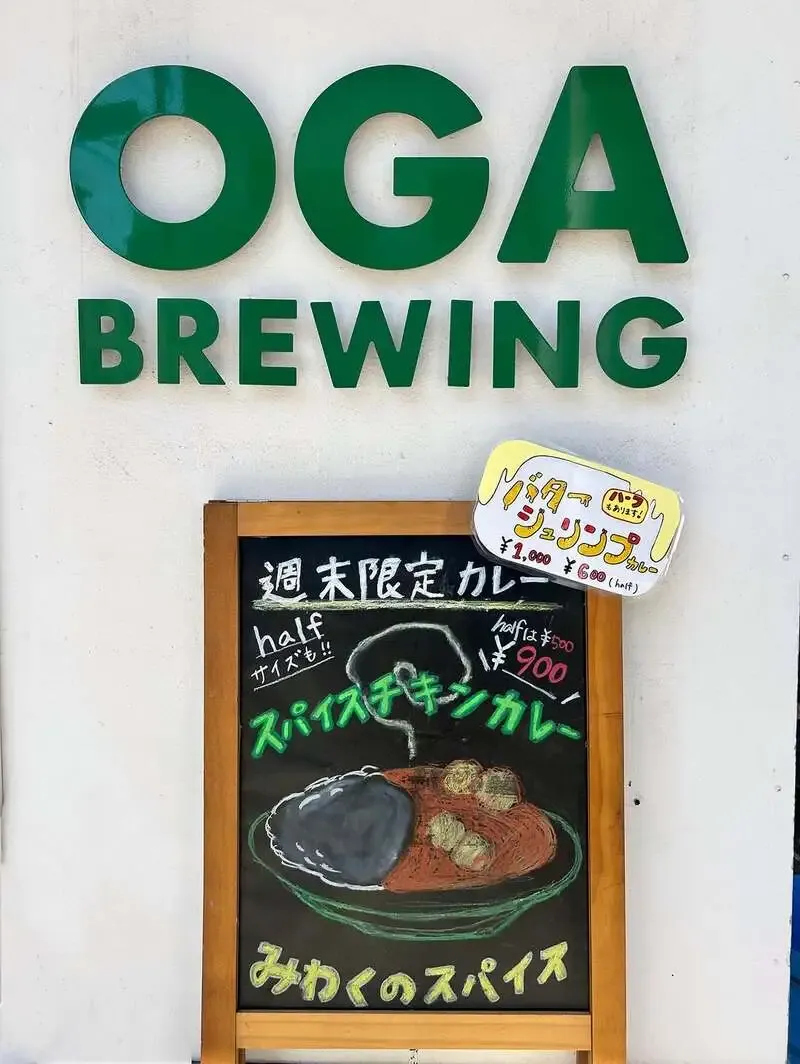 OGA
BREWING
バター
ハーフ
もあります!
シュリンプカレー
¥1,000 ¥600(half)
週末限定カレー
half
サイズも!!
halfは¥500
¥900
スパイスチキンカレー
みわくのスパイス